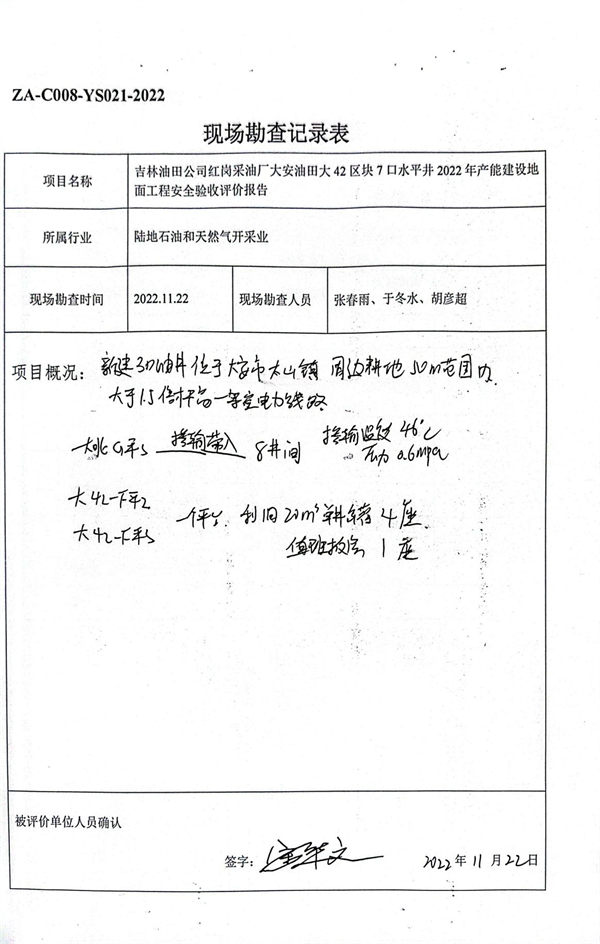 ZA-C008-YS021-2022
现场勘查记录表
项目名称
吉林油田公司红岗采油厂大安油田大 42 区块 7 口水平井 2022 年产能建设地
面工程安全验收评价报告
所属行业
陆地石油和天然气开采业
现场勘查时间
2022.11.22
现场勘查人员
张春雨、于冬水、胡彦超
项目概况：
新建3口油井位于大安市大山镇 周边耕地 50m范围内
大于1.5倍杆高 架空电力线路
掺输带入 8井间 掺输温度 46℃
压力 0.6mpa
大42-下平2
大42-下平3
一平台. 利旧20m³单井罐 4座.
值班板房 1座
被评价单位人员确认
签字：
2022年11月22日